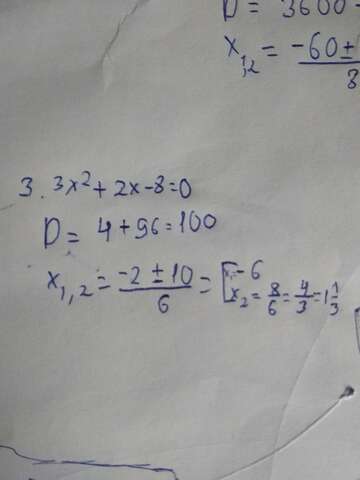 D = 3600
x₁,₂ = -60±
8
3. 3x²+2x-8=0
D = 4+96=100
x₁,₂ = (-2±10)/6 = [x - 6
x₂ = 8/6 = 4/3 = 1 1/3